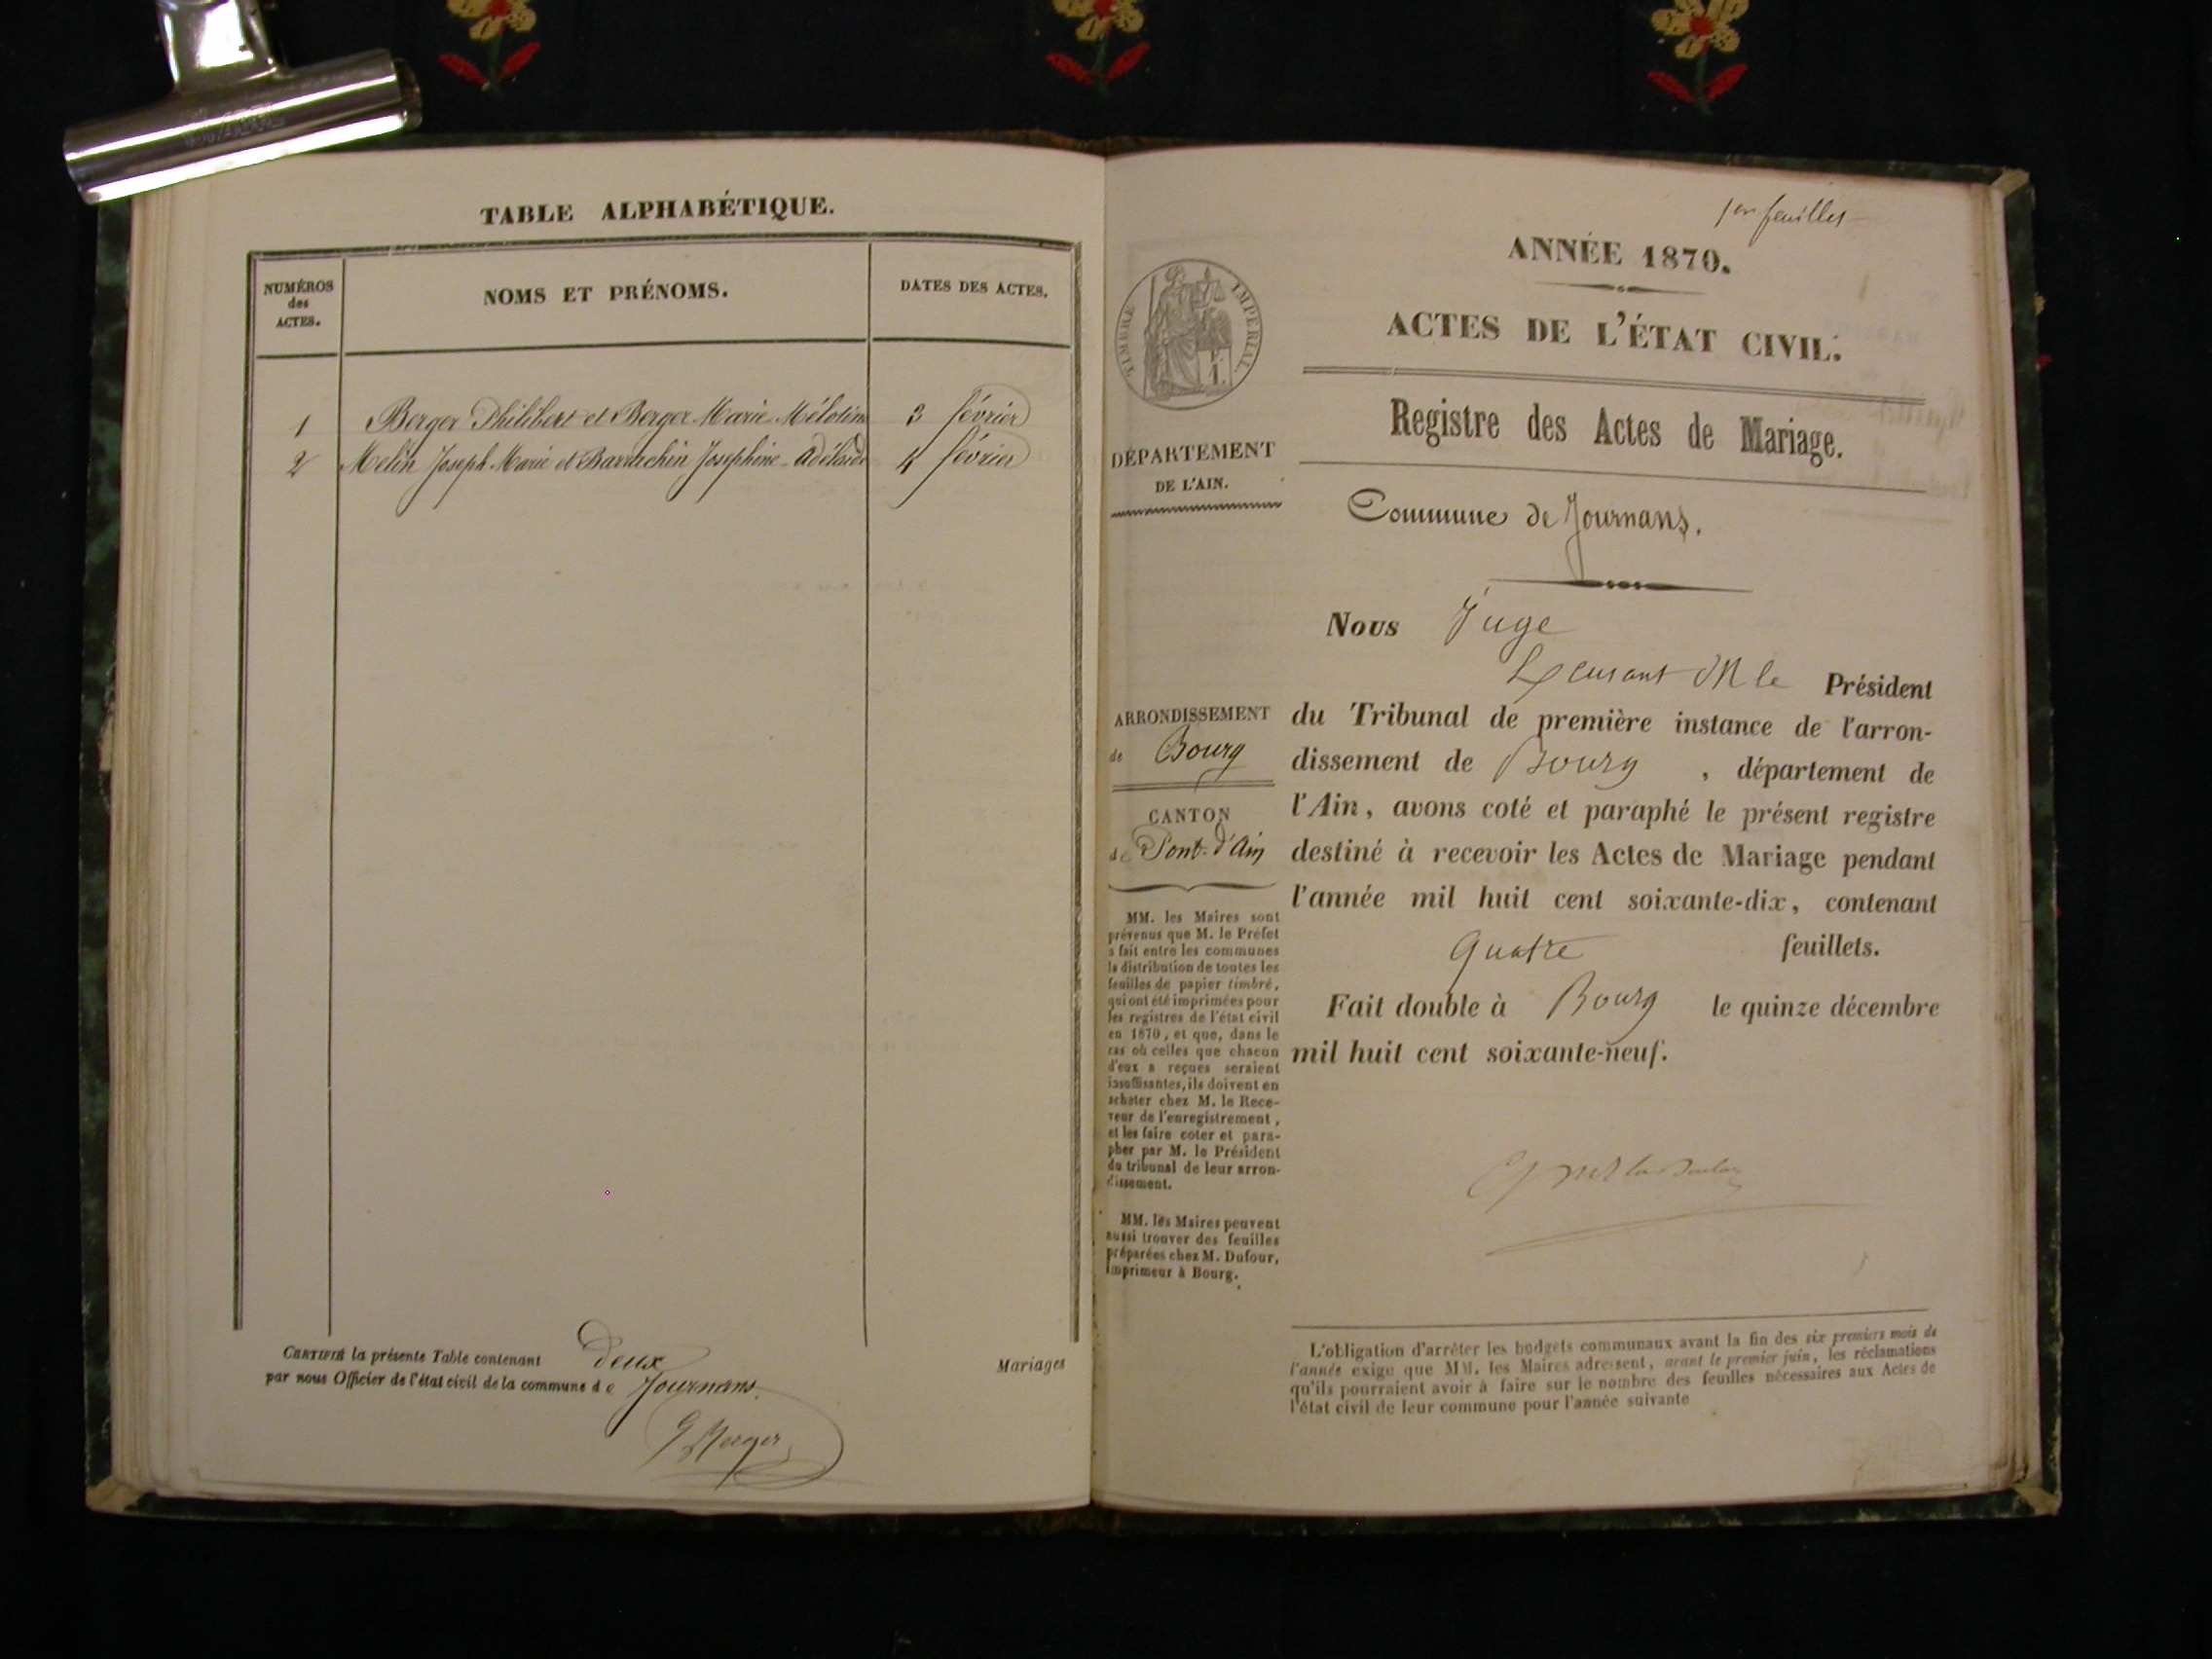 TABLE ALPHABÉTIQUE.
NUMÉROS
des
ACTES.
NOMS ET PRÉNOMS.
DATES DES ACTES.
1 Berger Philibert et Berger Marie Mélotine 3 février
2 Melin Joseph Marie et Barrachin Josephine Adélaïde 4 février
CERTIFIÉ la présente Table contenant deux Mariages
par nous Officier de l'état civil de la commune de Journans.
Berger
1er feuillet
ANNÉE 1870.
ACTES DE L'ÉTAT CIVIL.
Registre des Actes de Mariage.
Commune de Journans.
TIMBRE IMPERIAL
1
DÉPARTEMENT
DE L'AIN.
ARRONDISSEMENT
de Bourg
CANTON
de Pont-d'Ain
MM. les Maires sont
prévenus que M. le Préfet
a fait entre les communes
la distribution de toutes les
feuilles de papier timbré,
qui ont été imprimées pour
les registres de l'état civil
en 1870, et que, dans le
cas où celles que chacun
d'eux a reçues seraient
insuffisantes, ils doivent en
acheter chez M. le Rece-
veur de l'enregistrement,
et les faire coter et para-
pher par M. le Président
du tribunal de leur arron-
dissement.
MM. les Maires peuvent
aussi trouver des feuilles
préparées chez M. Dufour,
imprimeur à Bourg.
Nous Juge
M le Président
du Tribunal de première instance de l'arron-
dissement de Bourg, département de
l'Ain, avons coté et paraphé le présent registre
destiné à recevoir les Actes de Mariage pendant
l'année mil huit cent soixante-dix, contenant
quatre feuillets.
Fait double à Bourg le quinze décembre
mil huit cent soixante-neuf.
L'obligation d'arrêter les budgets communaux avant la fin des six premiers mois de
l'année exige que MM. les Maires adressent, avant le premier juin, les réclamations
qu'ils pourraient avoir à faire sur le nombre des feuilles nécessaires aux Actes de
l'état civil de leur commune pour l'année suivante